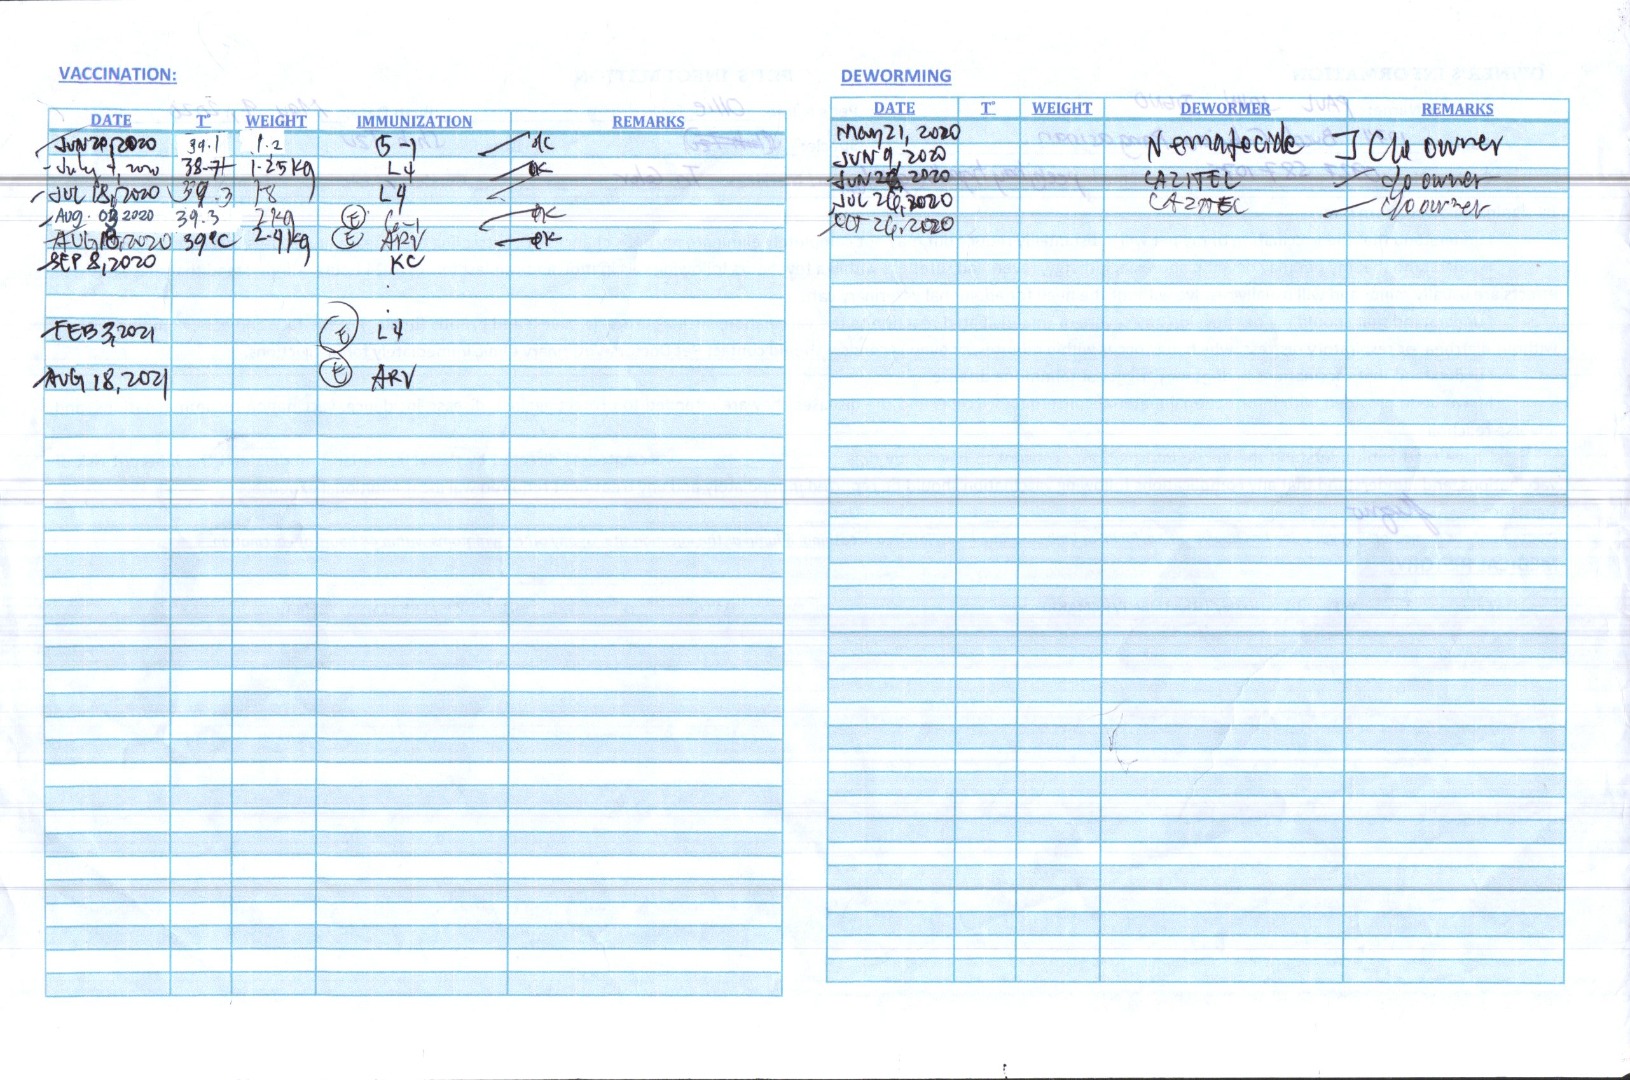 VACCINATION:
DATE T° WEIGHT IMMUNIZATION REMARKS
JUN 20, 2020 39.1 1.2 5-1
July 4, 2020 38.7 1.25kg L4 OK
JUL 18, 2020 39.3 1.8 L4
Aug. 03 2020 39.3 2kg E OK
AUG 18, 2020 39°C 2.4kg E ARV OK
SEP 8, 2020 KC
FEB 3, 2021 E L4
AUG 18, 2021 E ARV
DEWORMING
DATE T° WEIGHT DEWORMER REMARKS
May 21, 2020
JUN 9, 2020 Nematocide C/o owner
JUN 2020 CAZITEL c/o owner
JUL 26, 2020 CAZITEL c/o owner
OCT 26, 2020